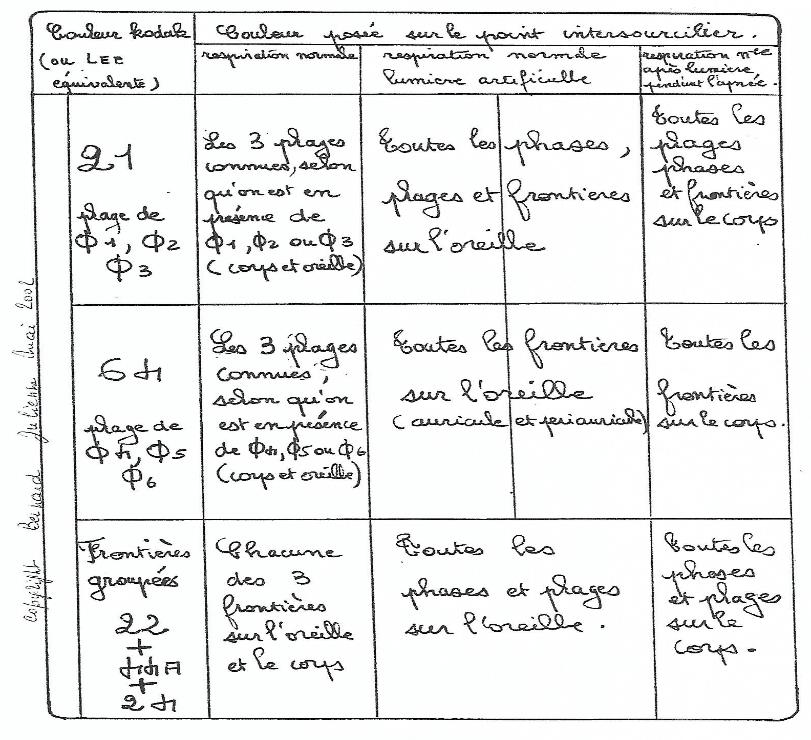 Couleur kodak
(ou LEE
équivalente)
Couleur posée sur le point intersourcilier.
respiration normale
respiration normale
lumière artificielle
respiration nle
après lumière
pendant l'apnée.
21
plage de
Φ1, Φ2
Φ3
Les 3 plages
connues, selon
qu'on est en
présence de
Φ1, Φ2 ou Φ3
(corps et oreille)
Toutes les phases,
plages et frontières
sur l'oreille
Toutes les
plages
phases
et frontières
sur le corps
64
plage de
Φ4, Φ5
Φ6
Les 3 plages
connues,
selon qu'on
est en présence
de Φ4, Φ5 ou Φ6
(corps et oreille)
Toutes les frontières
sur l'oreille
(auricule et periauricule)
Toutes les
frontières
sur le corps.
Frontières
groupées
22
+
44A
+
24
Chacune
des 3
frontières
sur l'oreille
et le corps
Toutes les
phases et plages
sur l'oreille.
Toutes les
phases
et plages
sur le
corps.
copyright Bernard Julienne mai 2002